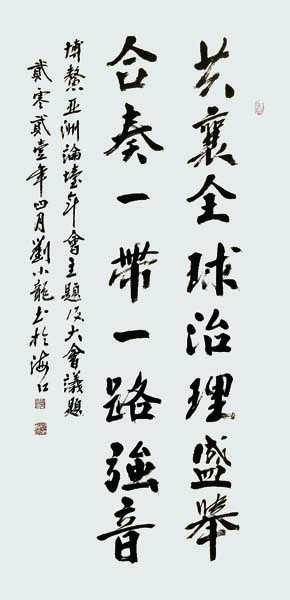 共襄全球治理盛舉
合奏一帶一路強音
博鰲亚洲論壇年會主題及大會議題
貳零貳壹年四月劉小龍书於海口